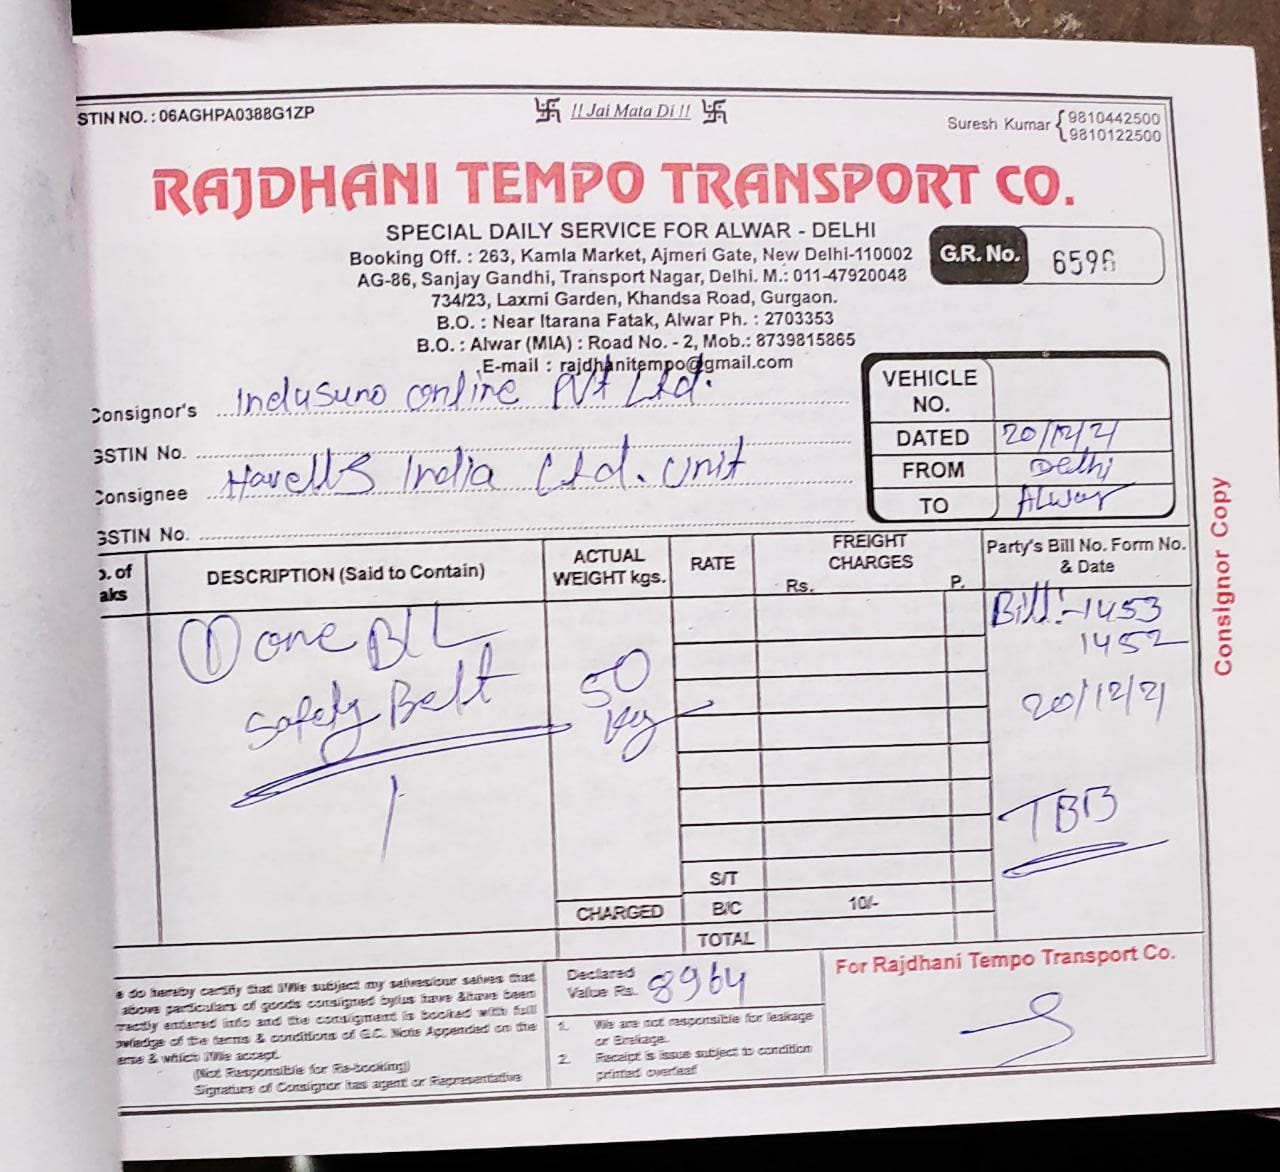 STIN NO. : 06AGHPA0388G1ZP
!! Jai Mata Di !!
Suresh Kumar { 9810442500
9810122500
RAJDHANI TEMPO TRANSPORT CO.
SPECIAL DAILY SERVICE FOR ALWAR - DELHI
Booking Off. : 263, Kamla Market, Ajmeri Gate, New Delhi-110002
AG-86, Sanjay Gandhi, Transport Nagar, Delhi. M.: 011-47920048
734/23, Laxmi Garden, Khandsa Road, Gurgaon.
B.O. : Near Itarana Fatak, Alwar Ph. : 2703353
B.O. : Alwar (MIA) : Road No. - 2, Mob.: 8739815865
E-mail : rajdhanitempo@gmail.com
G.R. No. 6596
Consignor's Indusuno online Pvt Ltd.
GSTIN No.
Consignee Havells India Ltd. Unit
GSTIN No.
VEHICLE NO.
DATED 20/12/21
FROM Delhi
TO Alwar
Consignor Copy
o. of aks
DESCRIPTION (Said to Contain)
ACTUAL WEIGHT kgs.
RATE
FREIGHT CHARGES
Rs. P.
Party's Bill No. Form No. & Date
① one
Safety Belt
50
kg
Bill:-1453
1452
20/12/21
TBB
1
S/T
CHARGED B/C 10/-
TOTAL
e do hereby certify that I/We subject my selves/our selves that
above particulars of goods consigned by/us have &have been
rrectly entered info and the consignment is booked with full
owledge of the terms & conditions of G.C. Note Appended on the
erse & which I/We accept.
(Not Responsible for Re-booking)
Signature of Consignor has agent or Representative
Declared
Value Rs. 8964
1. We are not responsible for leakage
or Brakage.
2. Receipt is issue subject to condition
printed overleaf
For Rajdhani Tempo Transport Co.